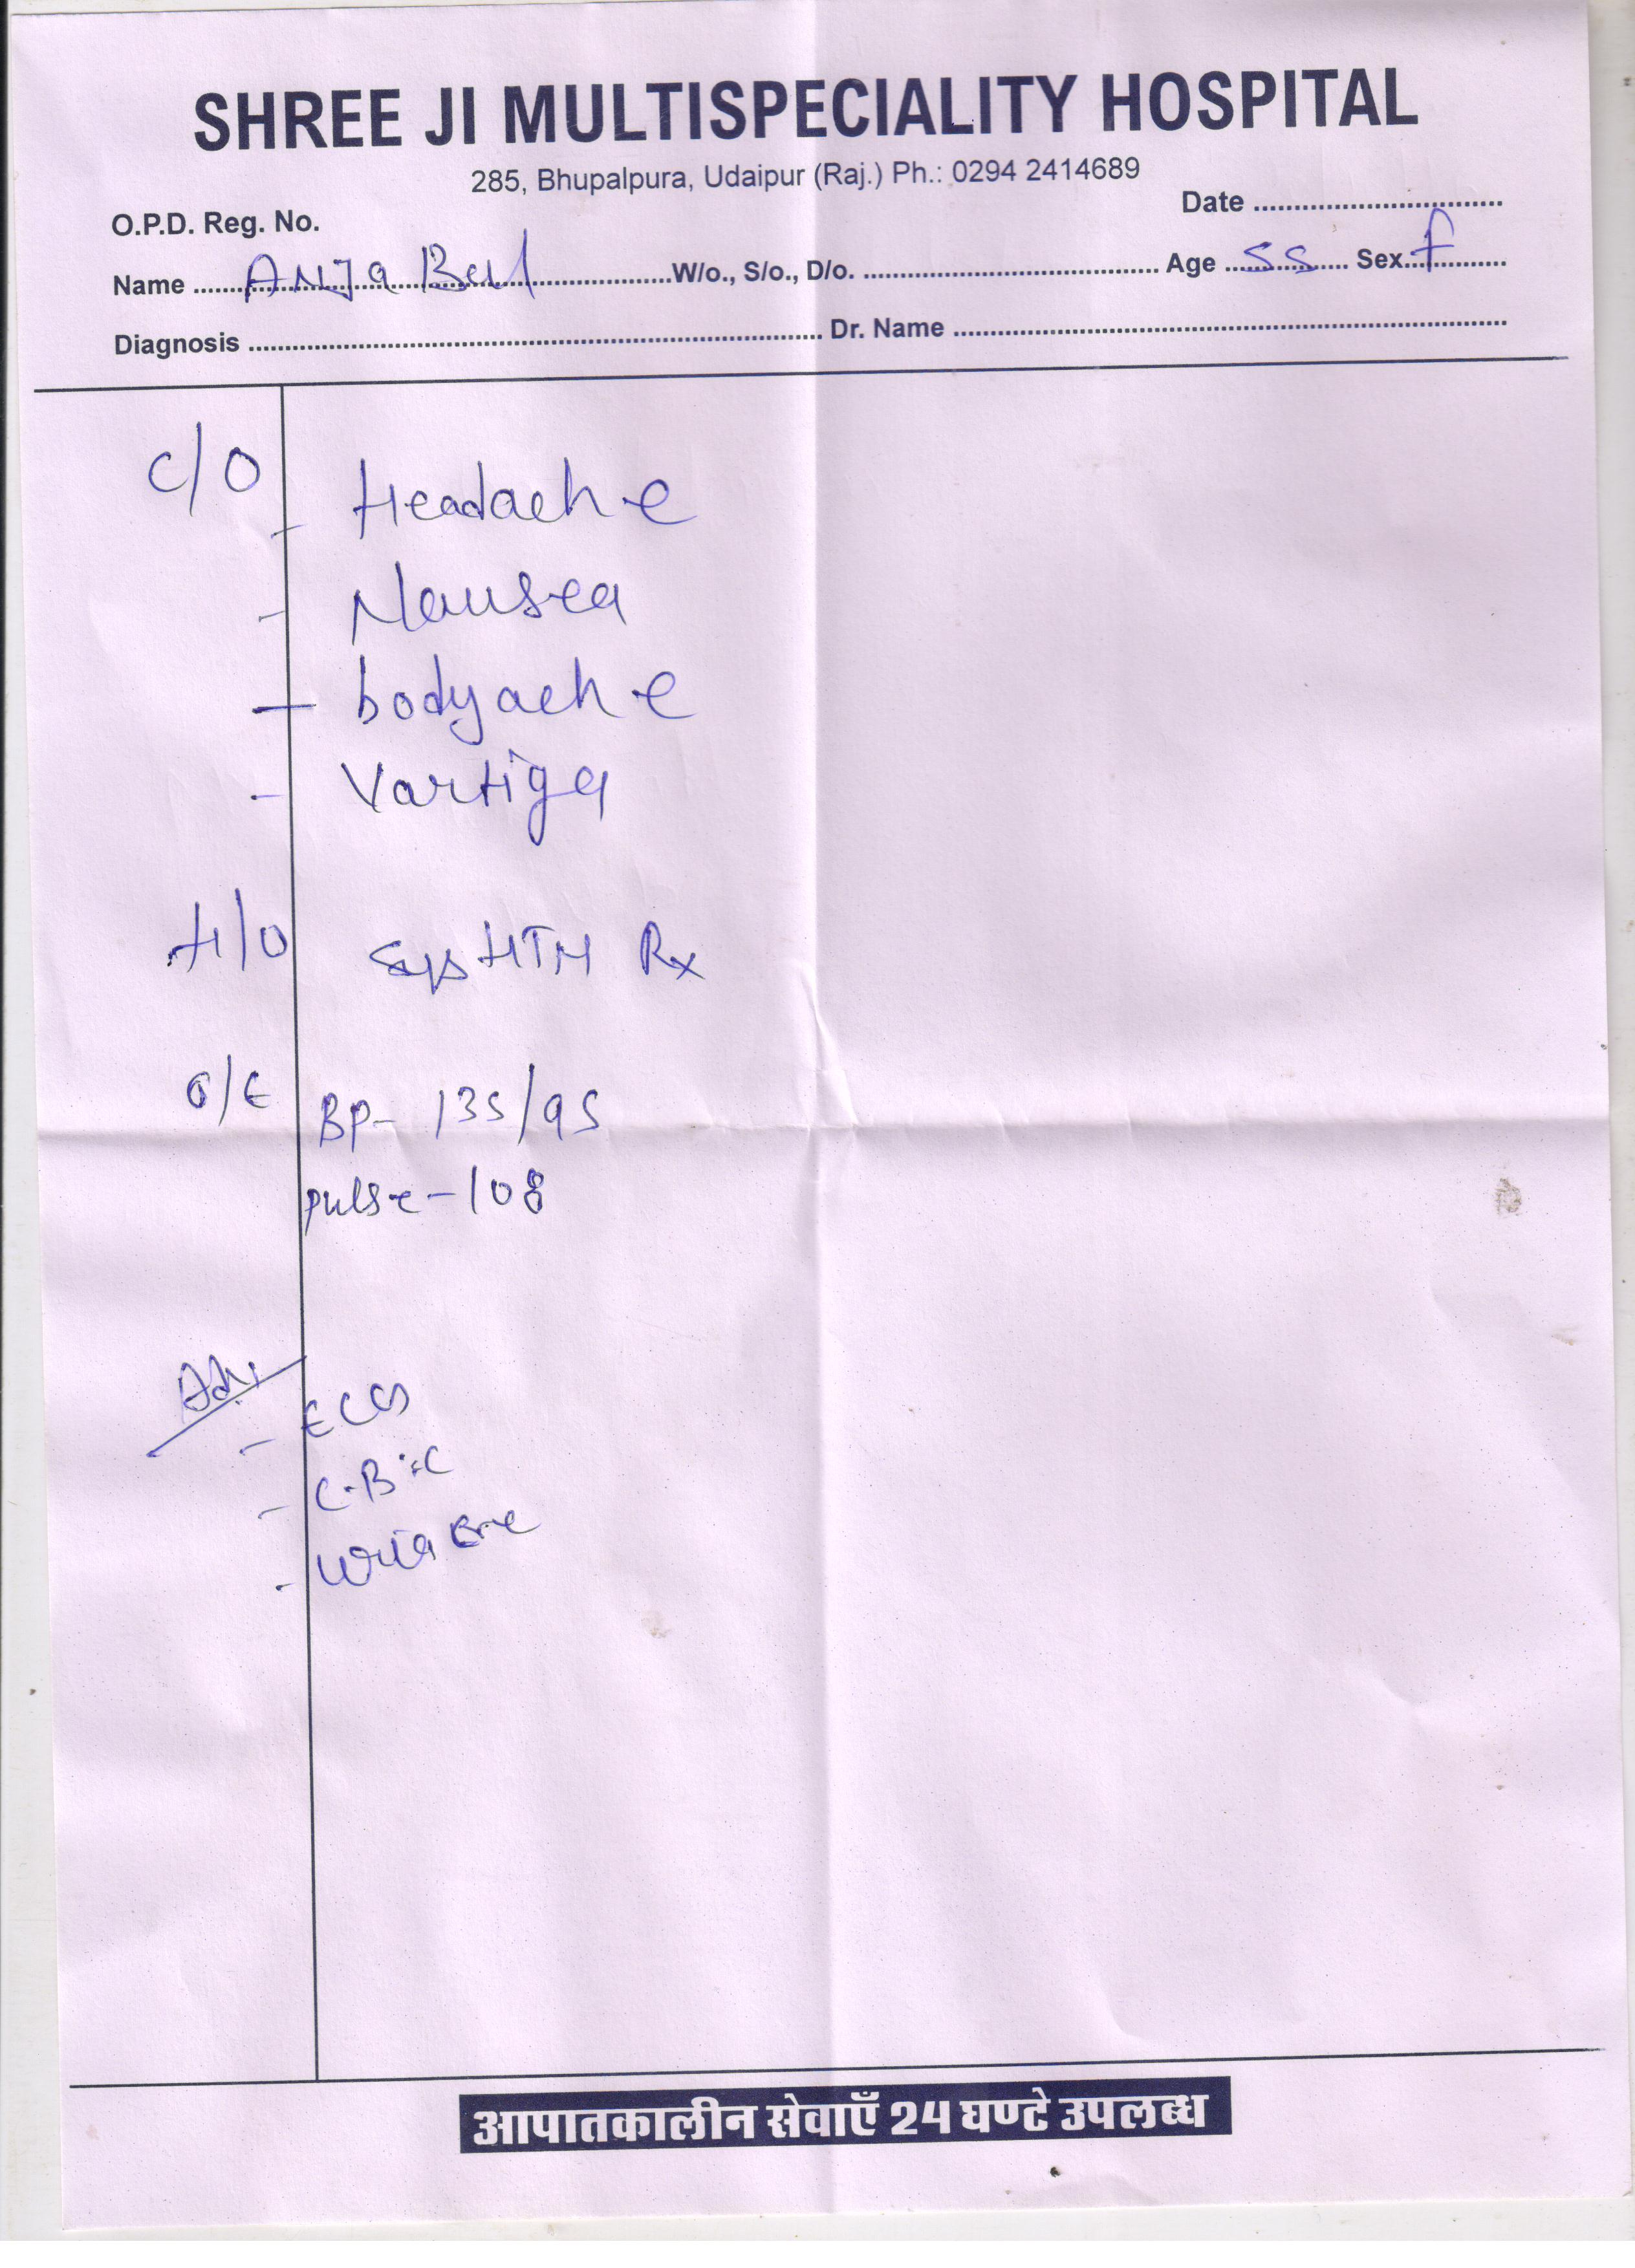 SHREE JI MULTISPECIALITY HOSPITAL
285, Bhupalpura, Udaipur (Raj.) Ph.: 0294 2414689
Date ..............................
O.P.D. Reg. No.
Name ..... Anja ..... W/o., S/o., D/o. ..... Age ..55.. Sex..f.....
Diagnosis ..... Dr. Name .....
C/O
- Headache
- Nausea
- bodyache
- Vartiga
H/O Sys HTN Rx
O/E BP- 135/95
pulse-108
Adv
- ECG
- C.B.C
-
आपातकालीन सेवाएँ 24 घण्टे उपलब्ध